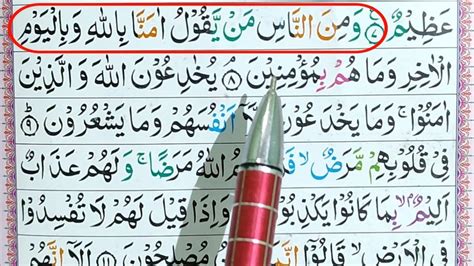 عَظِيْمٌ ۟﴿۷﴾ وَمِنَ النَّاسِ مَنْ يَّقُوْلُ اٰمَنَّا بِاللّٰهِ وَبِالْيَوْمِ
الْاٰخِرِ وَمَا هُمْ بِمُؤْمِنِيْنَ ﴿۸﴾ يُخٰدِعُوْنَ اللّٰهَ وَالَّذِيْنَ
اٰمَنُوْا ۚ وَمَا يَخْدَعُوْنَ اِلَّاۤ اَنْفُسَهُمْ وَمَا يَشْعُرُوْنَ ﴿۹﴾
فِيْ قُلُوْبِهِمْ مَّرَضٌ ۙ اللّٰهُ مَرَضًا ۚ وَلَهُمْ عَذَابٌ
اَلِيْمٌ ۢ ۙ بِمَا كَانُوْا يَكْذِبُوْنَ وَاِذَا قِيْلَ لَهُمْ لَا تُفْسِدُوْا
فِي الْاَرْضِ ۙ قَالُوْۤا مُصْلِحُوْنَ ﴿۱۱﴾ اَلَاۤ اِنَّهُمْ